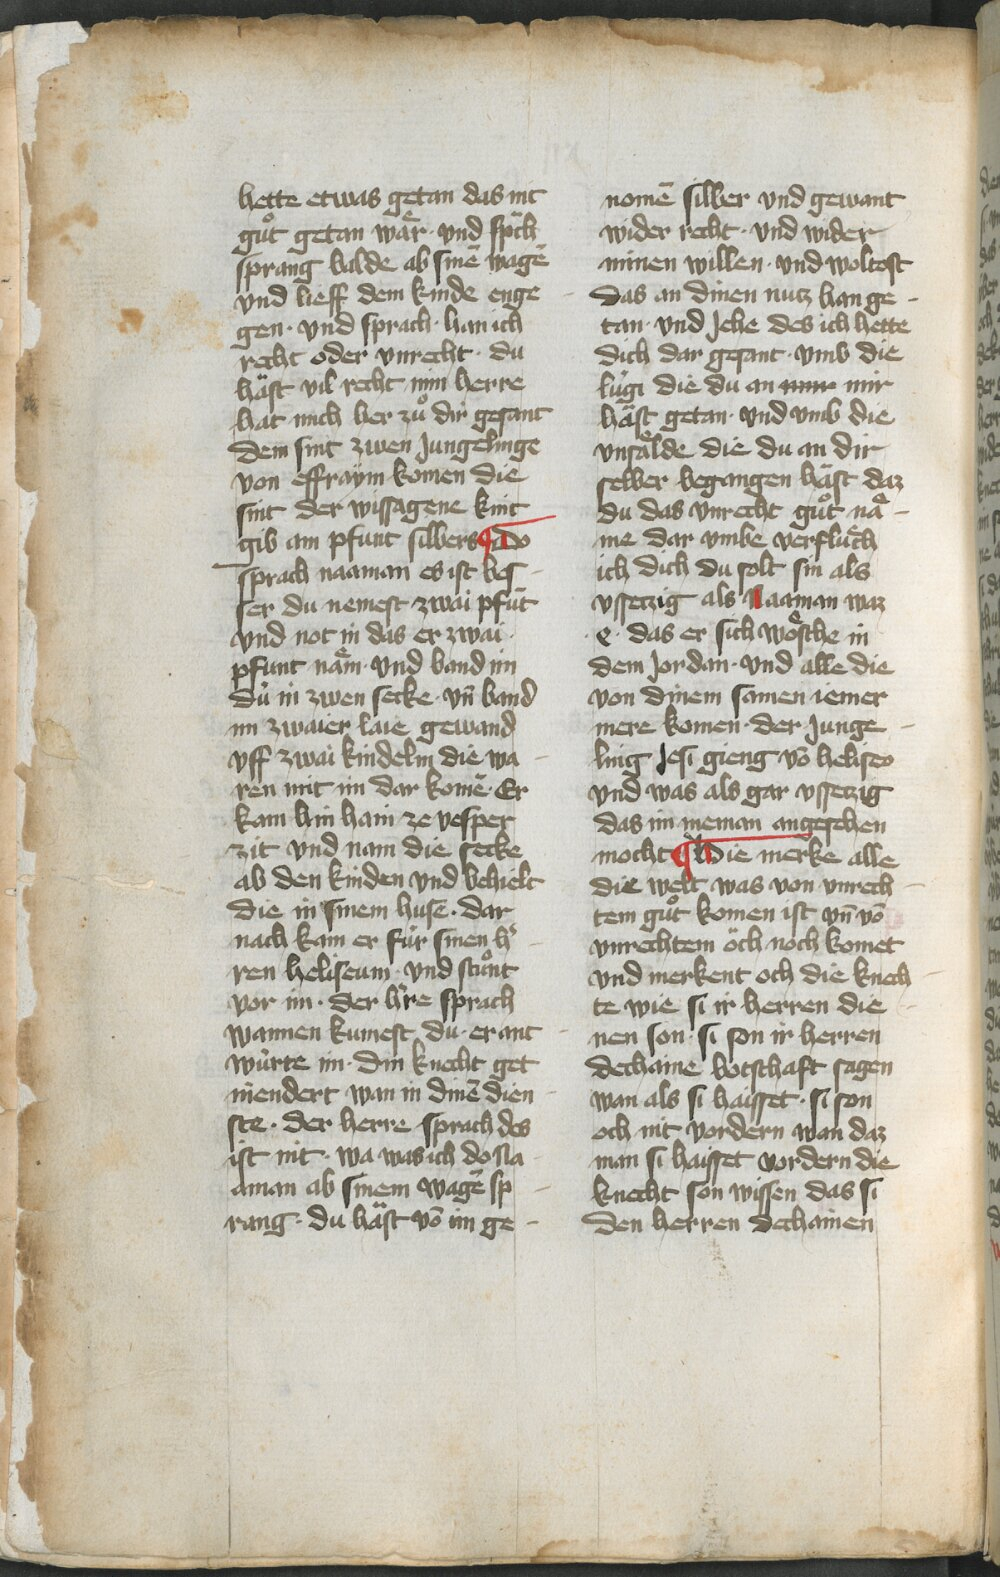 hette etwas getan das nit
guͦt getan waͤr · vnd spͣch
sprang balde ab sinē wagē
vnd lieff dem kinde enge
gen · vnd sprach · han ich
recht oder vnrecht · du
haͤst vil recht min herre
hat mich her zuͦ dir gesant
dem sint zwen Jungelinge
von effraym komen die
sint der wissagene kint
gib am pfunt silbers ¶ Do
sprach naaman es ist bes
ser du nemest zwai pfūt
vnd not in das er zwai
pfunt naͤm · vnd band im
dú in zwen secke · vn̄ band
im zwaier laie gewand
vff zwai kindelin die wa
ren mit im dar komē · Er
kam hin hain ze vesper
zit vnd nam die secke
ab den kinden vnd behielt
die in sinem huse · dar
nach kam er fúr sinen h̾
ren heliseum · vnd stuͦnt
vor im · der h̾re sprach
wannen kumest du · er ant
wúrte im · din knecht get
niendert wan in dinē dien
ste · der herre sprach des
ist nit · wa was ich do Na
aman ab sinem wagē sp
rang · du haͤst vō im ge -
nomē silber vnd gewant
wider recht · vnd wider
minen willen · vnd woltest
das an dinen nutz han ge -
tan · vnd Jehe des ich hette
dich dar gesant · vmb die
lúgi die du an mir
haͤst getan · vnd vmb die
vnsaͤlde die du an dir
selber begangen haͤst daz
du das vnrecht guͦt naͤ -
me dar vmbe verfluͦch
ich dich du solt sin als
vssetzig als Naaman waz
e · das er sich woͤsche in
dem Jordan · vnd alle die
von dinem samen iemer
mere komen · der Junge -
ling Jesi gieng vō heliseo
vnd was als gar vssetzig
das im nieman angesehen
mocht ¶ Die merke alle
die welt was von vnrech -
tem guͦt komen ist vn̄ vō
vnrechtem oͤch noch komet
vnd merkent och die knech -
te wie si ir herren die -
nen son · si son ir herren
dechaine botschaft sagen
wan als si haisset · si son
och nit vordern wan daz
man si haisset vordern die
knecht son wissen das si
den herren dechainen